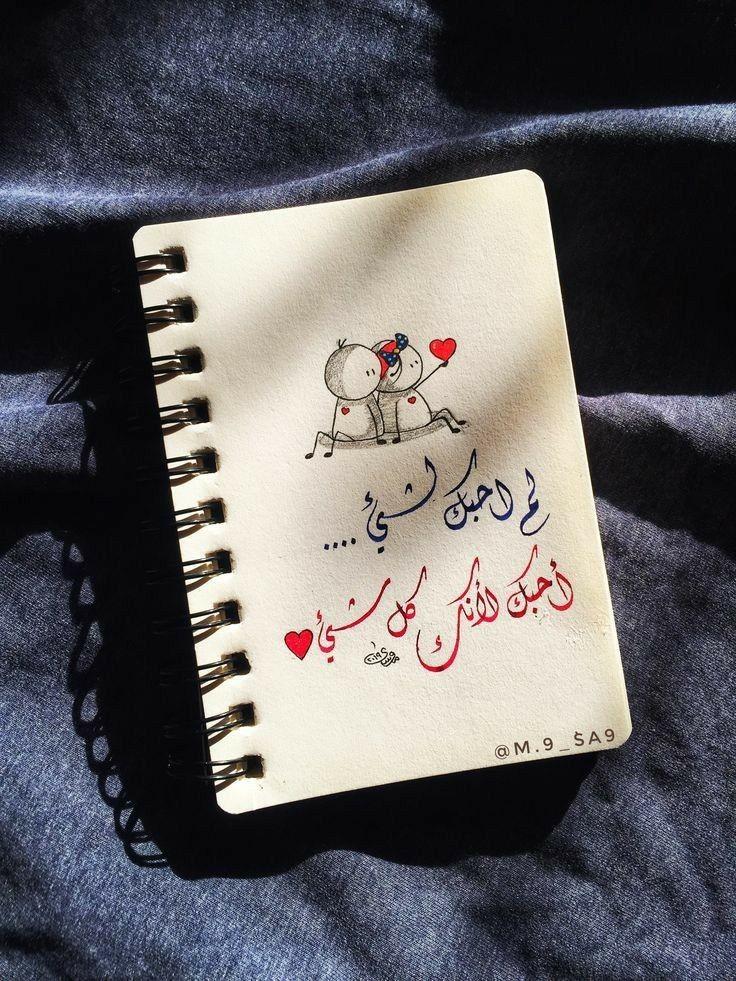 لم احبك لشيئ ....
أحبك لأنك كل شيئ
@M.9_SA9